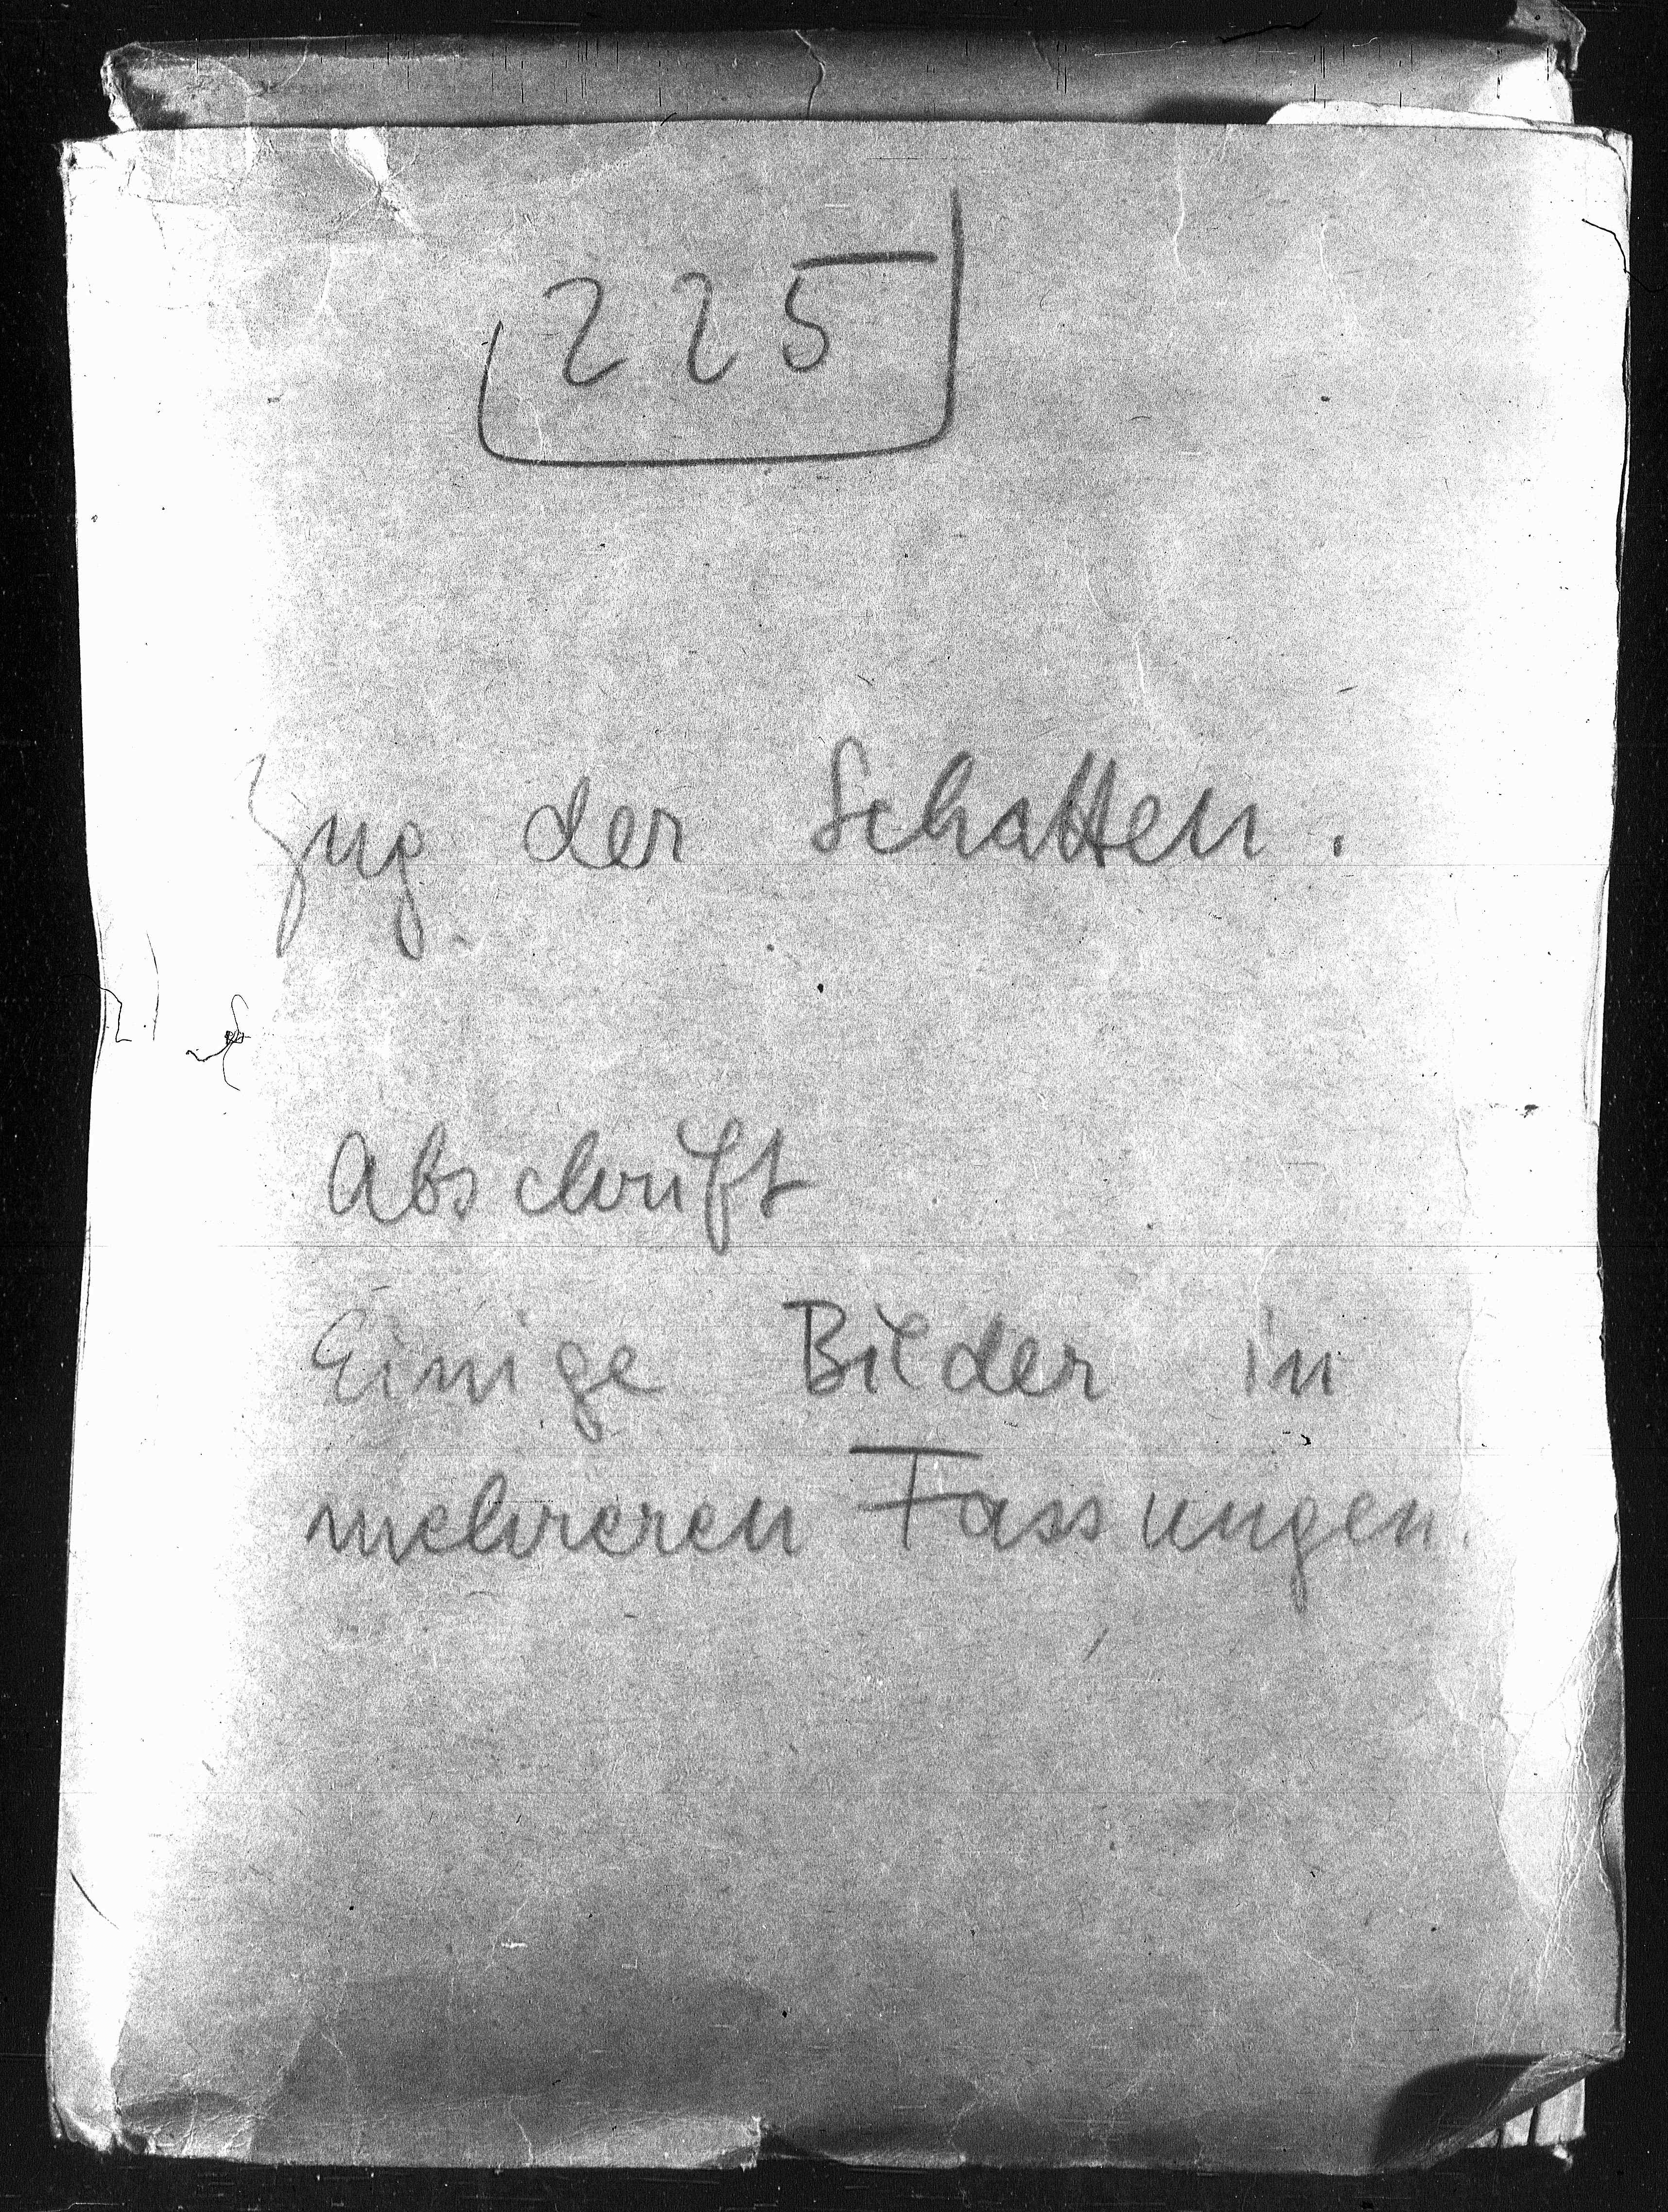 225
Zug der Schatten.
Abschrift
Einige Bilder in
mehreren Fassungen.